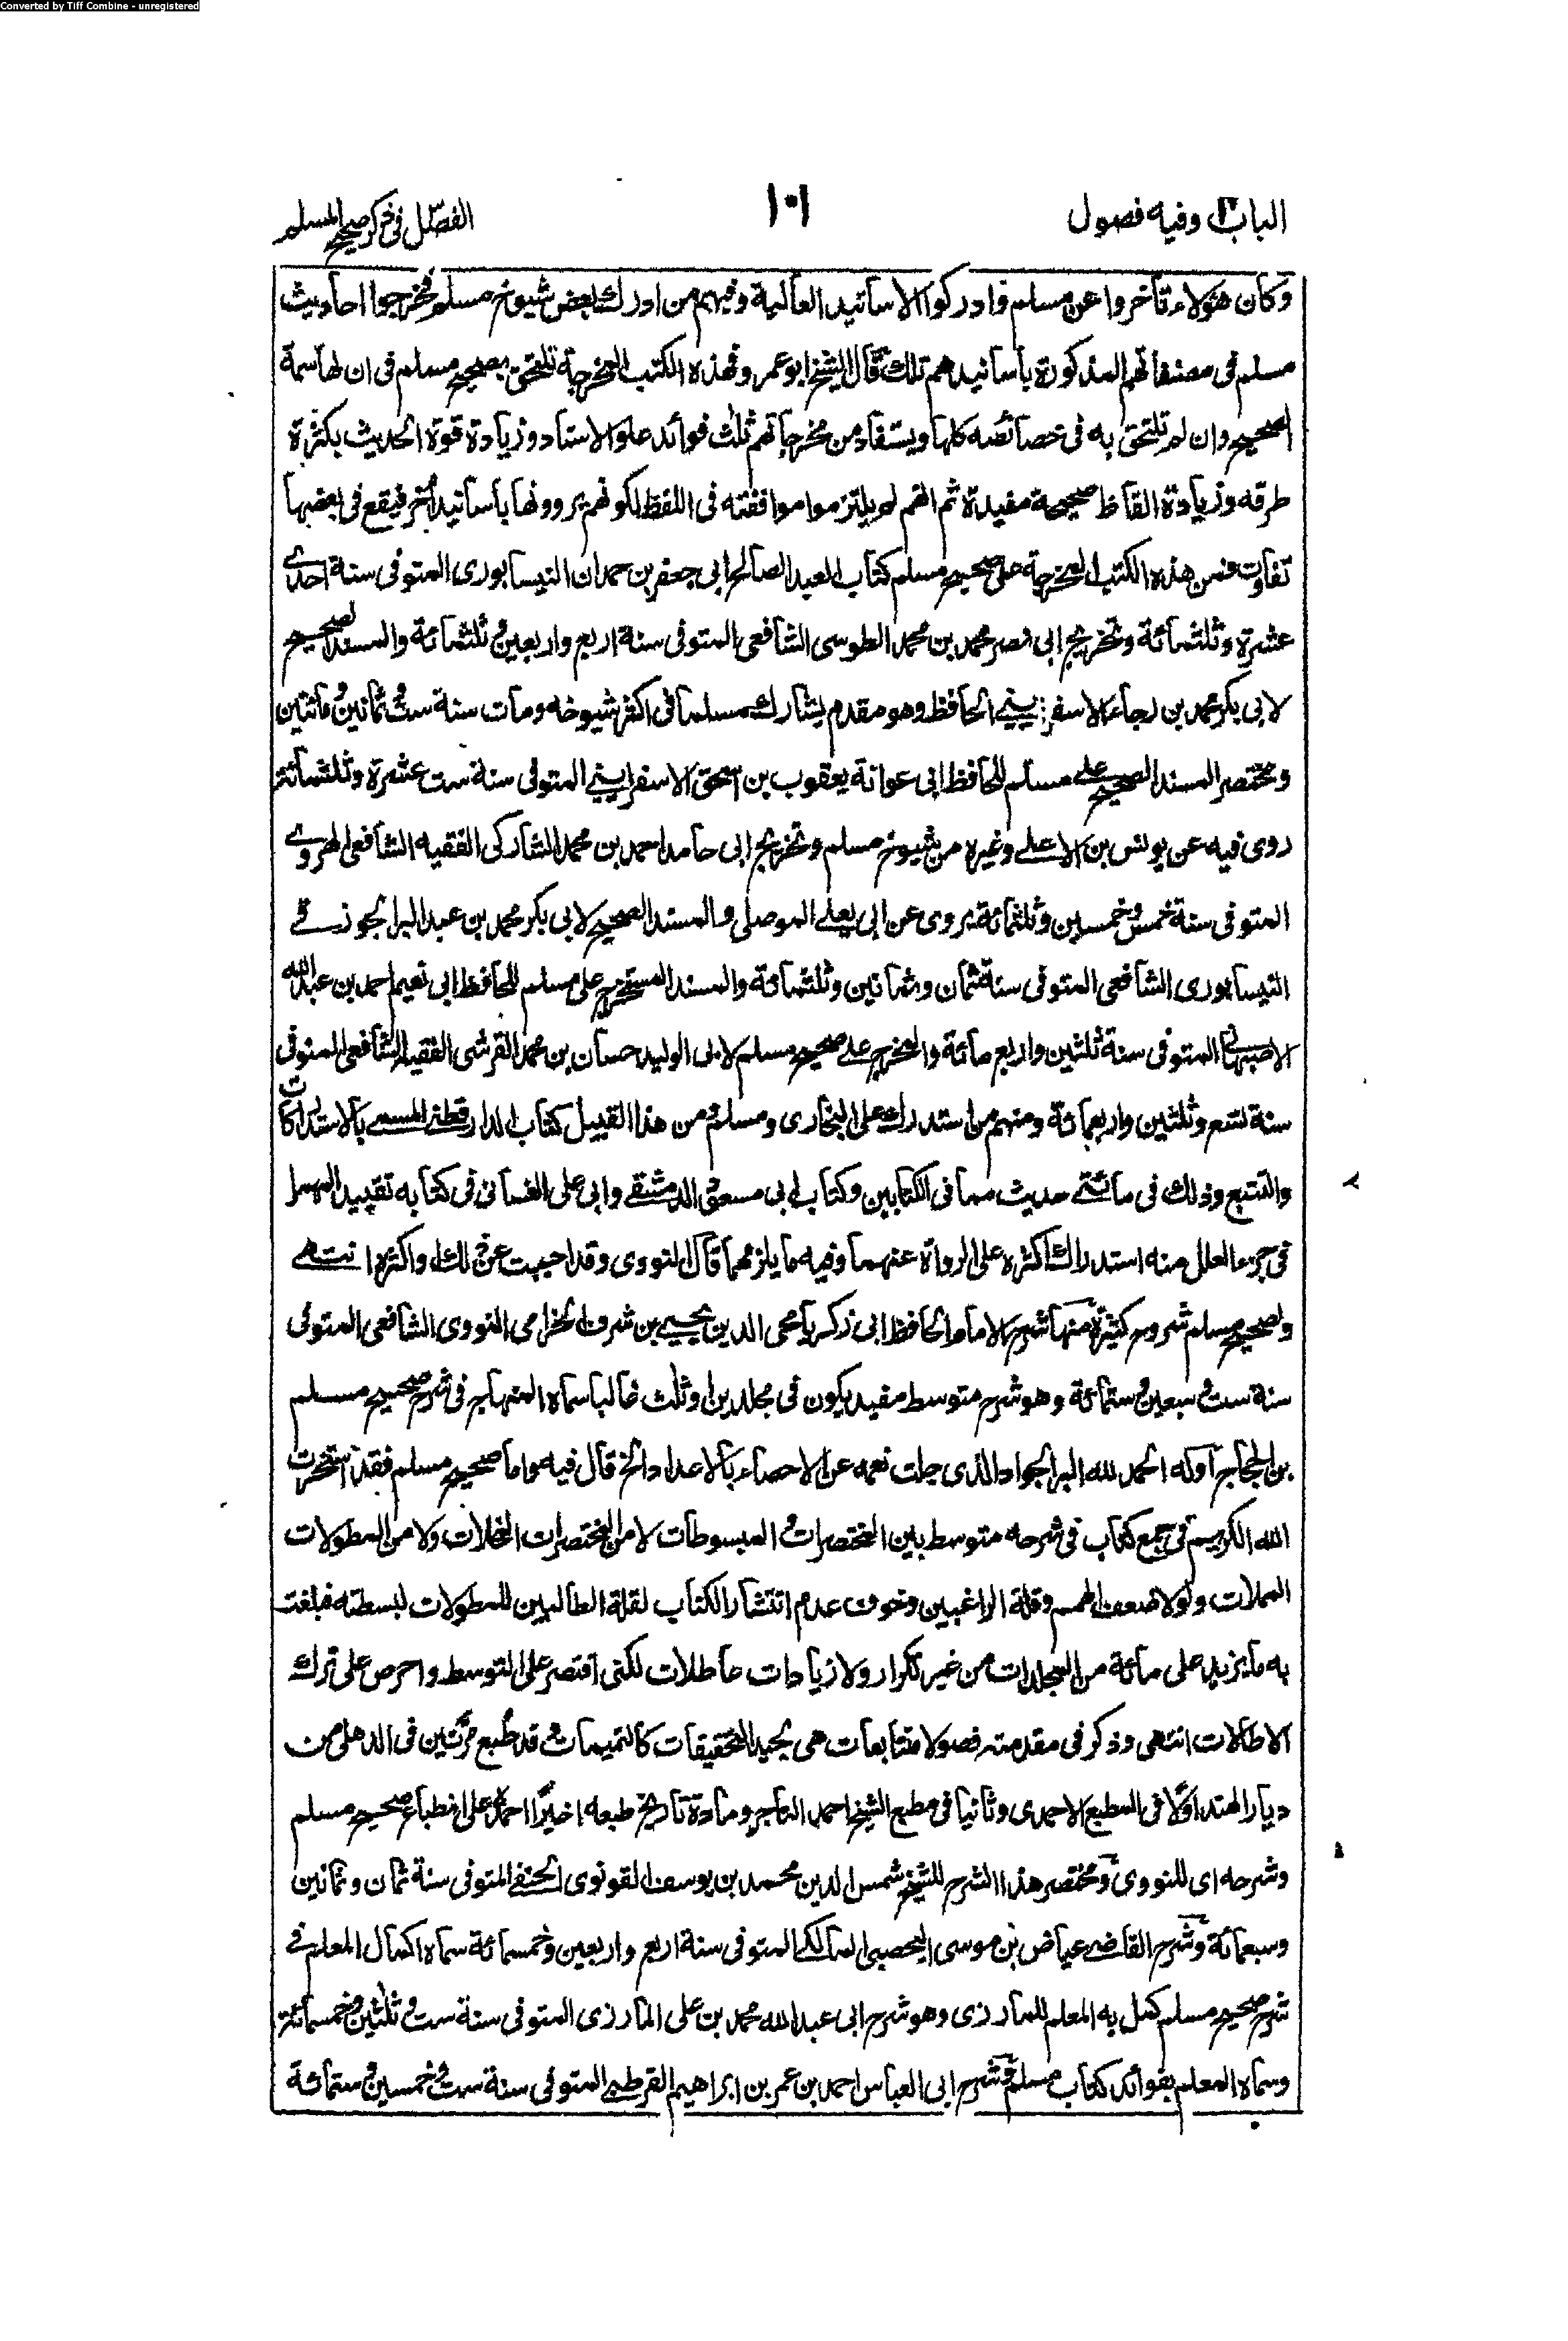 Converted by Tiff Combine - unregistered
الباب وفيه فصول
١٠١
الفصل في ذكر صحيح المسلم
وكان هؤلاء تأخروا عن مسلم فادركوا الاسانيد العالية وفيهم من ادرك بعض شيوخ مسلم فخرجوا احاديث
مسلم في مصنفاتهم المذكورة باسانيدهم تلك قال الشيخ ابو عمر وفهذه الكتب المخرجة تلتحق بصحيح مسلم في ان لها سمة
الصحيح وان لم تلتحق به في خصائصه كلها ويستفاد من مخرجاتهم ثلث فوائد علو الاسناد وزيادة قوة الحديث بكثرة
طرقه وزيادة الفاظ صحيحة مفيدة ثم انهم لم يلتزموا موافقته في اللفظ لكونهم يروونها باسانيد أخر فيقع في بعضها
تفاوت فمن هذه الكتب المخرجة على صحيح مسلم كتاب العبد الصالح ابي جعفر بن حمدان النيسابوري المتوفى سنة احدى
عشرة وثلثمائة وتخريج ابي نصر محمد بن محمد الطوسي الشافعي المتوفى سنة اربع واربعين وثلثمائة والمسند الصحيح
لابي بكر محمد بن رجاء الاسفرايني الحافظ وهو مقدم يشارك مسلما في اكثر شيوخه ومات سنة ست وثمانين ومائتين
ومختصر المسند الصحيح على مسلم للحافظ ابي عوانة يعقوب بن اسحق الاسفرايني المتوفى سنة ست عشرة وثلثمائة
روى فيه عن يونس بن الاعلى وغيره من شيوخ مسلم وتخريج ابي حامد احمد بن محمد الشاركي الفقيه الشافعي الهروي
المتوفى سنة خمس وخمسين وثلثمائة يروي عن ابي يعلى الموصلي والمسند الصحيح لابي بكر محمد بن عبد البر الجوزقي
النيسابوري الشافعي المتوفى سنة ثمان وثمانين وثلثمائة والمسند المستخرج على مسلم للحافظ ابي نعيم احمد بن عبد الله
الاصبهاني المتوفى سنة ثلثين واربع مائة والمخرج على صحيح مسلم لابي الوليد حسان بن محمد القرشي الفقيه الشافعي المتوفى
سنة تسع وثلثين واربعمائة ومنهم من استدرك على البخاري ومسلم ومن هذا القبيل كتاب الدارقطني المسمى بالاستدراكات
والتتبع وذلك في مائتي حديث مما في الكتابين وكتاب ابي مسعود الدمشقي وابي علي الغساني في كتابه تقييد المهمل
في جزء العلل منه استدراك اكثره على الرواة عنهما وفيه ما يلزمهما قال النووي وقد اجيبت عن ذلك او اكثره انتهى
ولصحيح مسلم شروح كثيرة منها شرح الامام الحافظ ابي زكريا محي الدين يحيى بن شرف الخزامي النووي الشافعي المتوفى
سنة ست وسبعين وستمائة وهو شرح متوسط مفيد يكون في مجلدين او ثلث غالبا سماه المنهاج في شرح صحيح مسلم
بن الحجاج اوله الحمد لله البر الجواد الذي جلت نعمه عن الاحصاء بالاعداد الخ قال فيه واما صحيح مسلم فقد استخرت
الله الكريم في جمع كتاب في شرحه متوسط بين المختصرات والمبسوطات لا من المختصرات المخلات ولا من المطولات
المملات ولولا ضعف الهمم وقلة الراغبين وخوف عدم انتشار الكتاب لقلة الطالبين للمطولات لبسطته فبلغت
به ما يزيد على مائة من المجلدات من غير تكرار ولا زيادات عاطلات لكني اقتصر على التوسط واحرص على ترك
الاطالات انتهى وذكر في مقدمته فصولا متتابعات هي بجيد التحقيقات كالتميمات وقد طبع مرتين في الدهلي من
ديار الهند اولا في المطبع الاحمدي وثانيا في مطبع الشيخ احمد التاجر ومادة تاريخ طبعه اخيرا احمده على انطباع صحيح مسلم
وشرحه اي للنووي ومختصر هذا الشرح للشيخ شمس الدين محمد بن يوسف القونوي الحنفي المتوفى سنة ثمان وثمانين
وسبعمائة وشرح القاضي عياض بن موسى اليحصبي المالكي المتوفى سنة اربع واربعين وخمسمائة سماه اكمال المعلم في
شرح صحيح مسلم كمل به المعلم للمازري وهو شرح ابي عبد الله محمد بن علي المازري المتوفى سنة ست وثلثين وخمسمائة
وسماه المعلم بفوائد كتاب مسلم وشرح ابي العباس احمد بن عمر بن ابراهيم القرطبي المتوفى سنة ست وخمسين وستمائة